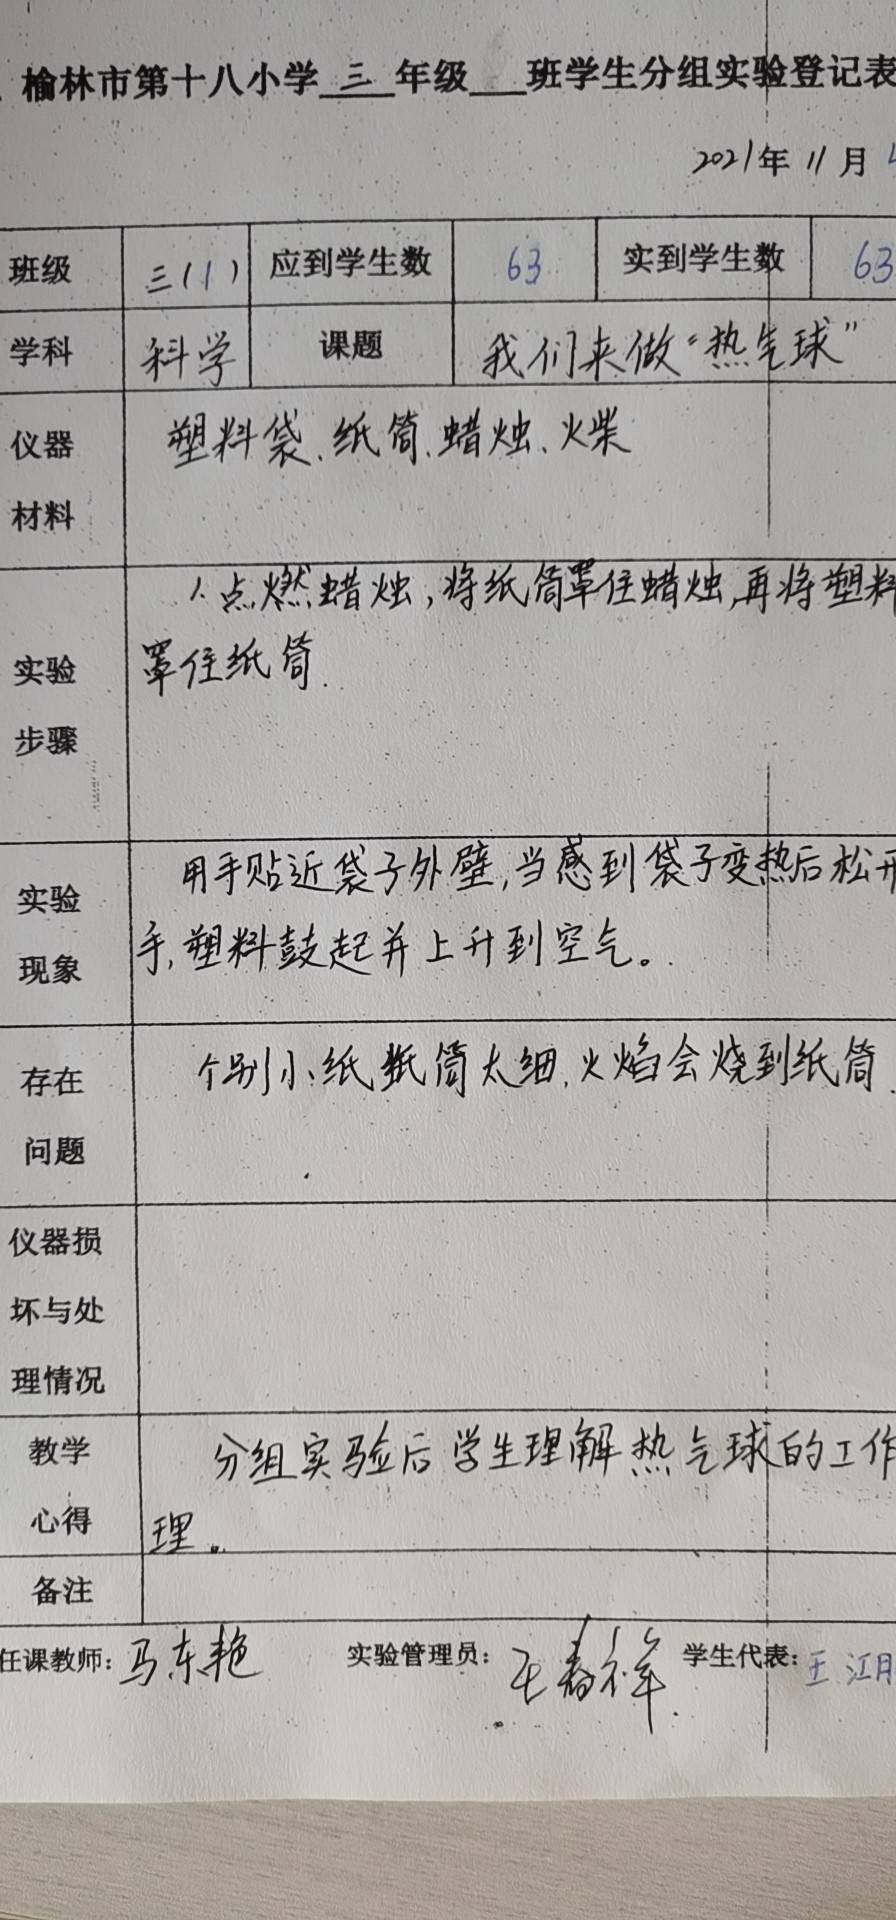 榆林市第十八小学 三 年级 班学生分组实验登记表
2021年 11月
班级 三(1) 应到学生数 63 实到学生数 63
学科 科学 课题 我们来做“热气球”
仪器材料 塑料袋、纸筒、蜡烛、火柴
实验步骤 1.点燃蜡烛,将纸筒罩住蜡烛,再将塑料
罩住纸筒.
实验现象 用手贴近袋子外壁,当感到袋子变热后松开
手,塑料鼓起并上升到空气。
存在问题 个别小纸筒太细,火焰会烧到纸筒.
仪器损坏与处理情况
教学心得 分组实验后学生理解热气球的工作
理。
备注
任课教师:马东艳 实验管理员:王春祥 学生代表:王江